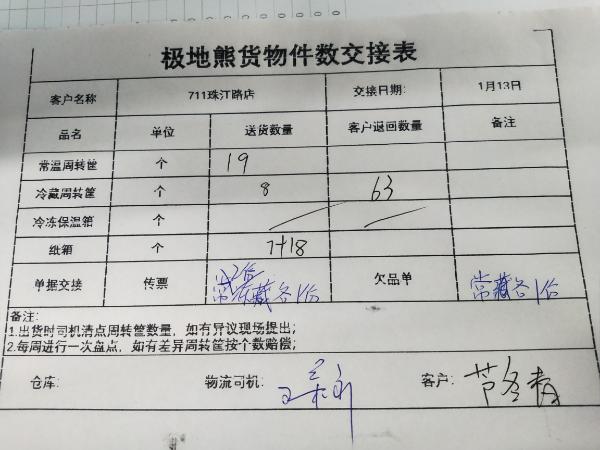 极地熊货物件数交接表
客户名称 711珠江路店 交接日期: 1月13日
品名 单位 送货数量 客户退回数量 备注
常温周转筐 个 19
冷藏周转筐 个 8 63
冷冻保温箱 个
纸箱 个 7+18
单据交接 传票 常藏各1份 欠品单 常藏各1份
备注:
1.出货时司机清点周转筐数量，如有异议现场提出;
2.每周进行一次盘点，如有差异周转筐按个数赔偿;
仓库: 物流司机: 客户: